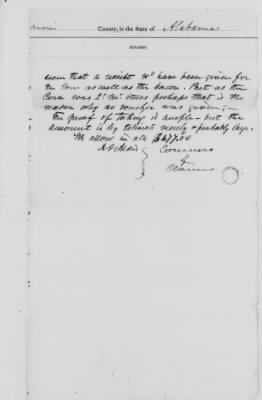 County, in the State of Alabama
REMARKS
seem that a receipt wd have been given for
the Corn as well as the bacon. But as the
Corn was perhaps that is the
reason why no voucher was given;—
The proof of taking is ample— but the
amount is by estimate merely & probably large.
We allow in all $477.00
A O Aldis
Commrs
of
Claims